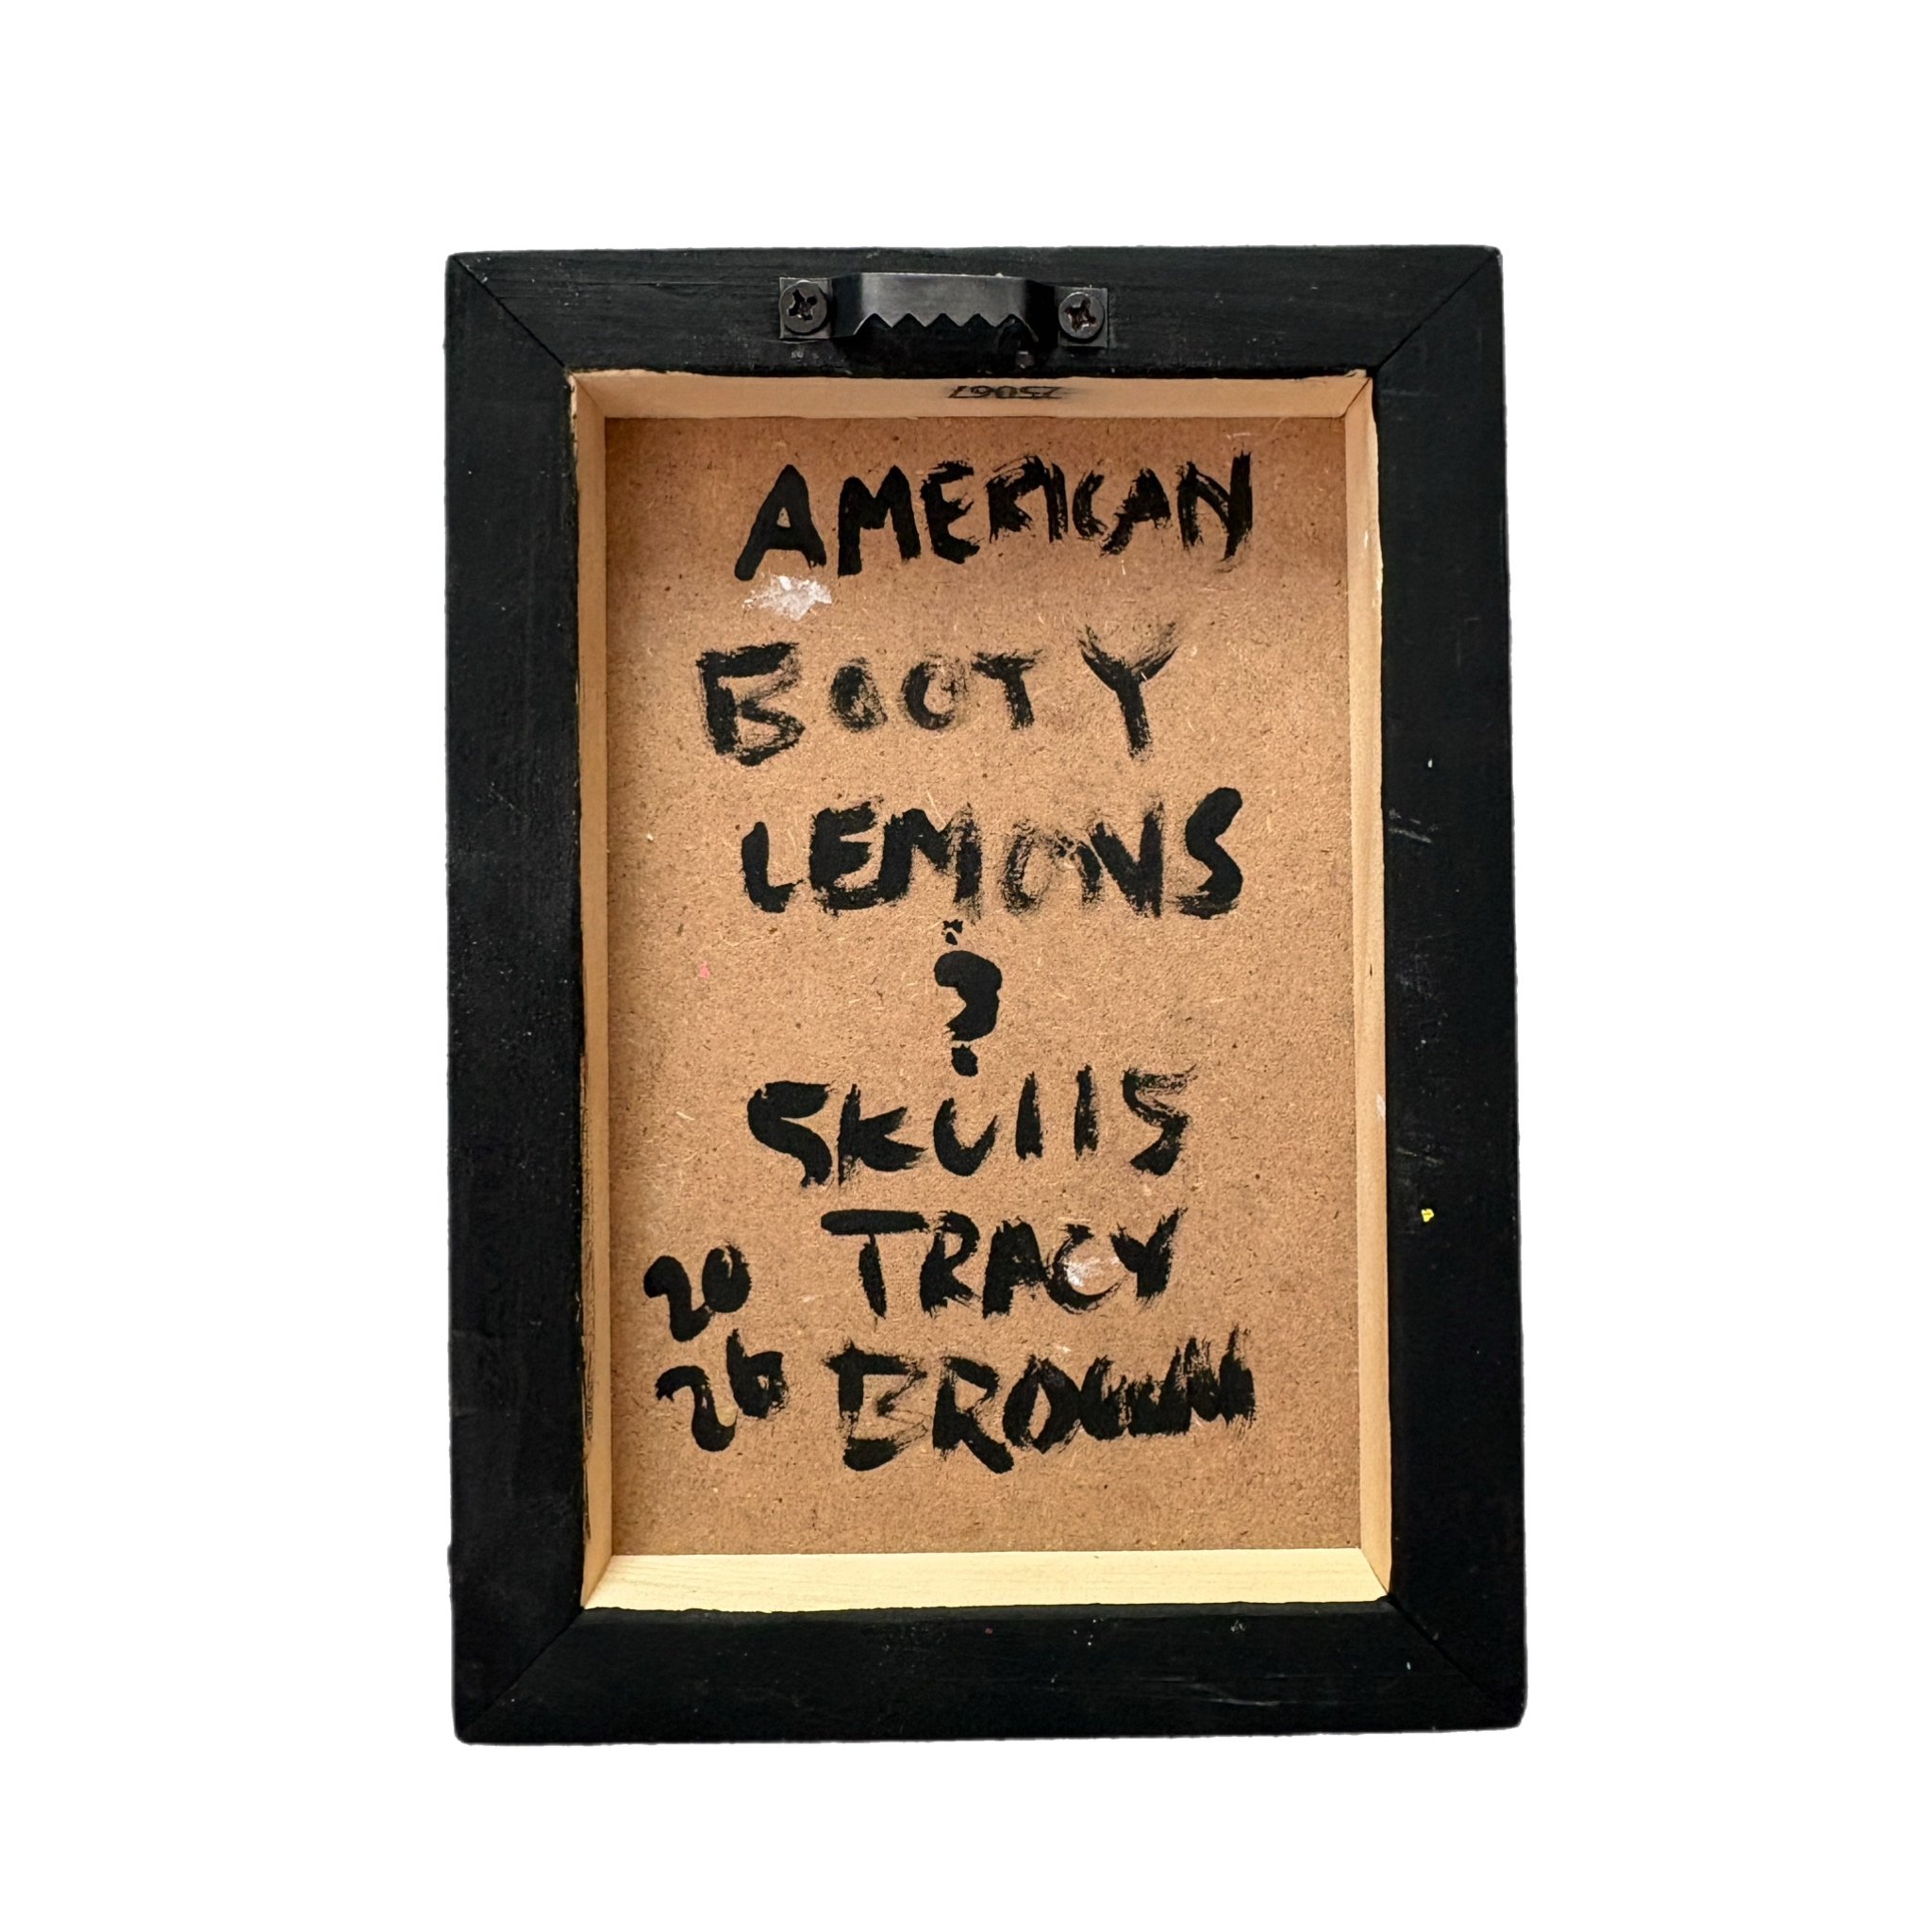 75067
AMERICAN
BOOTY
LEMONS
?
SKUllS
20 TRACY
26 BROWN